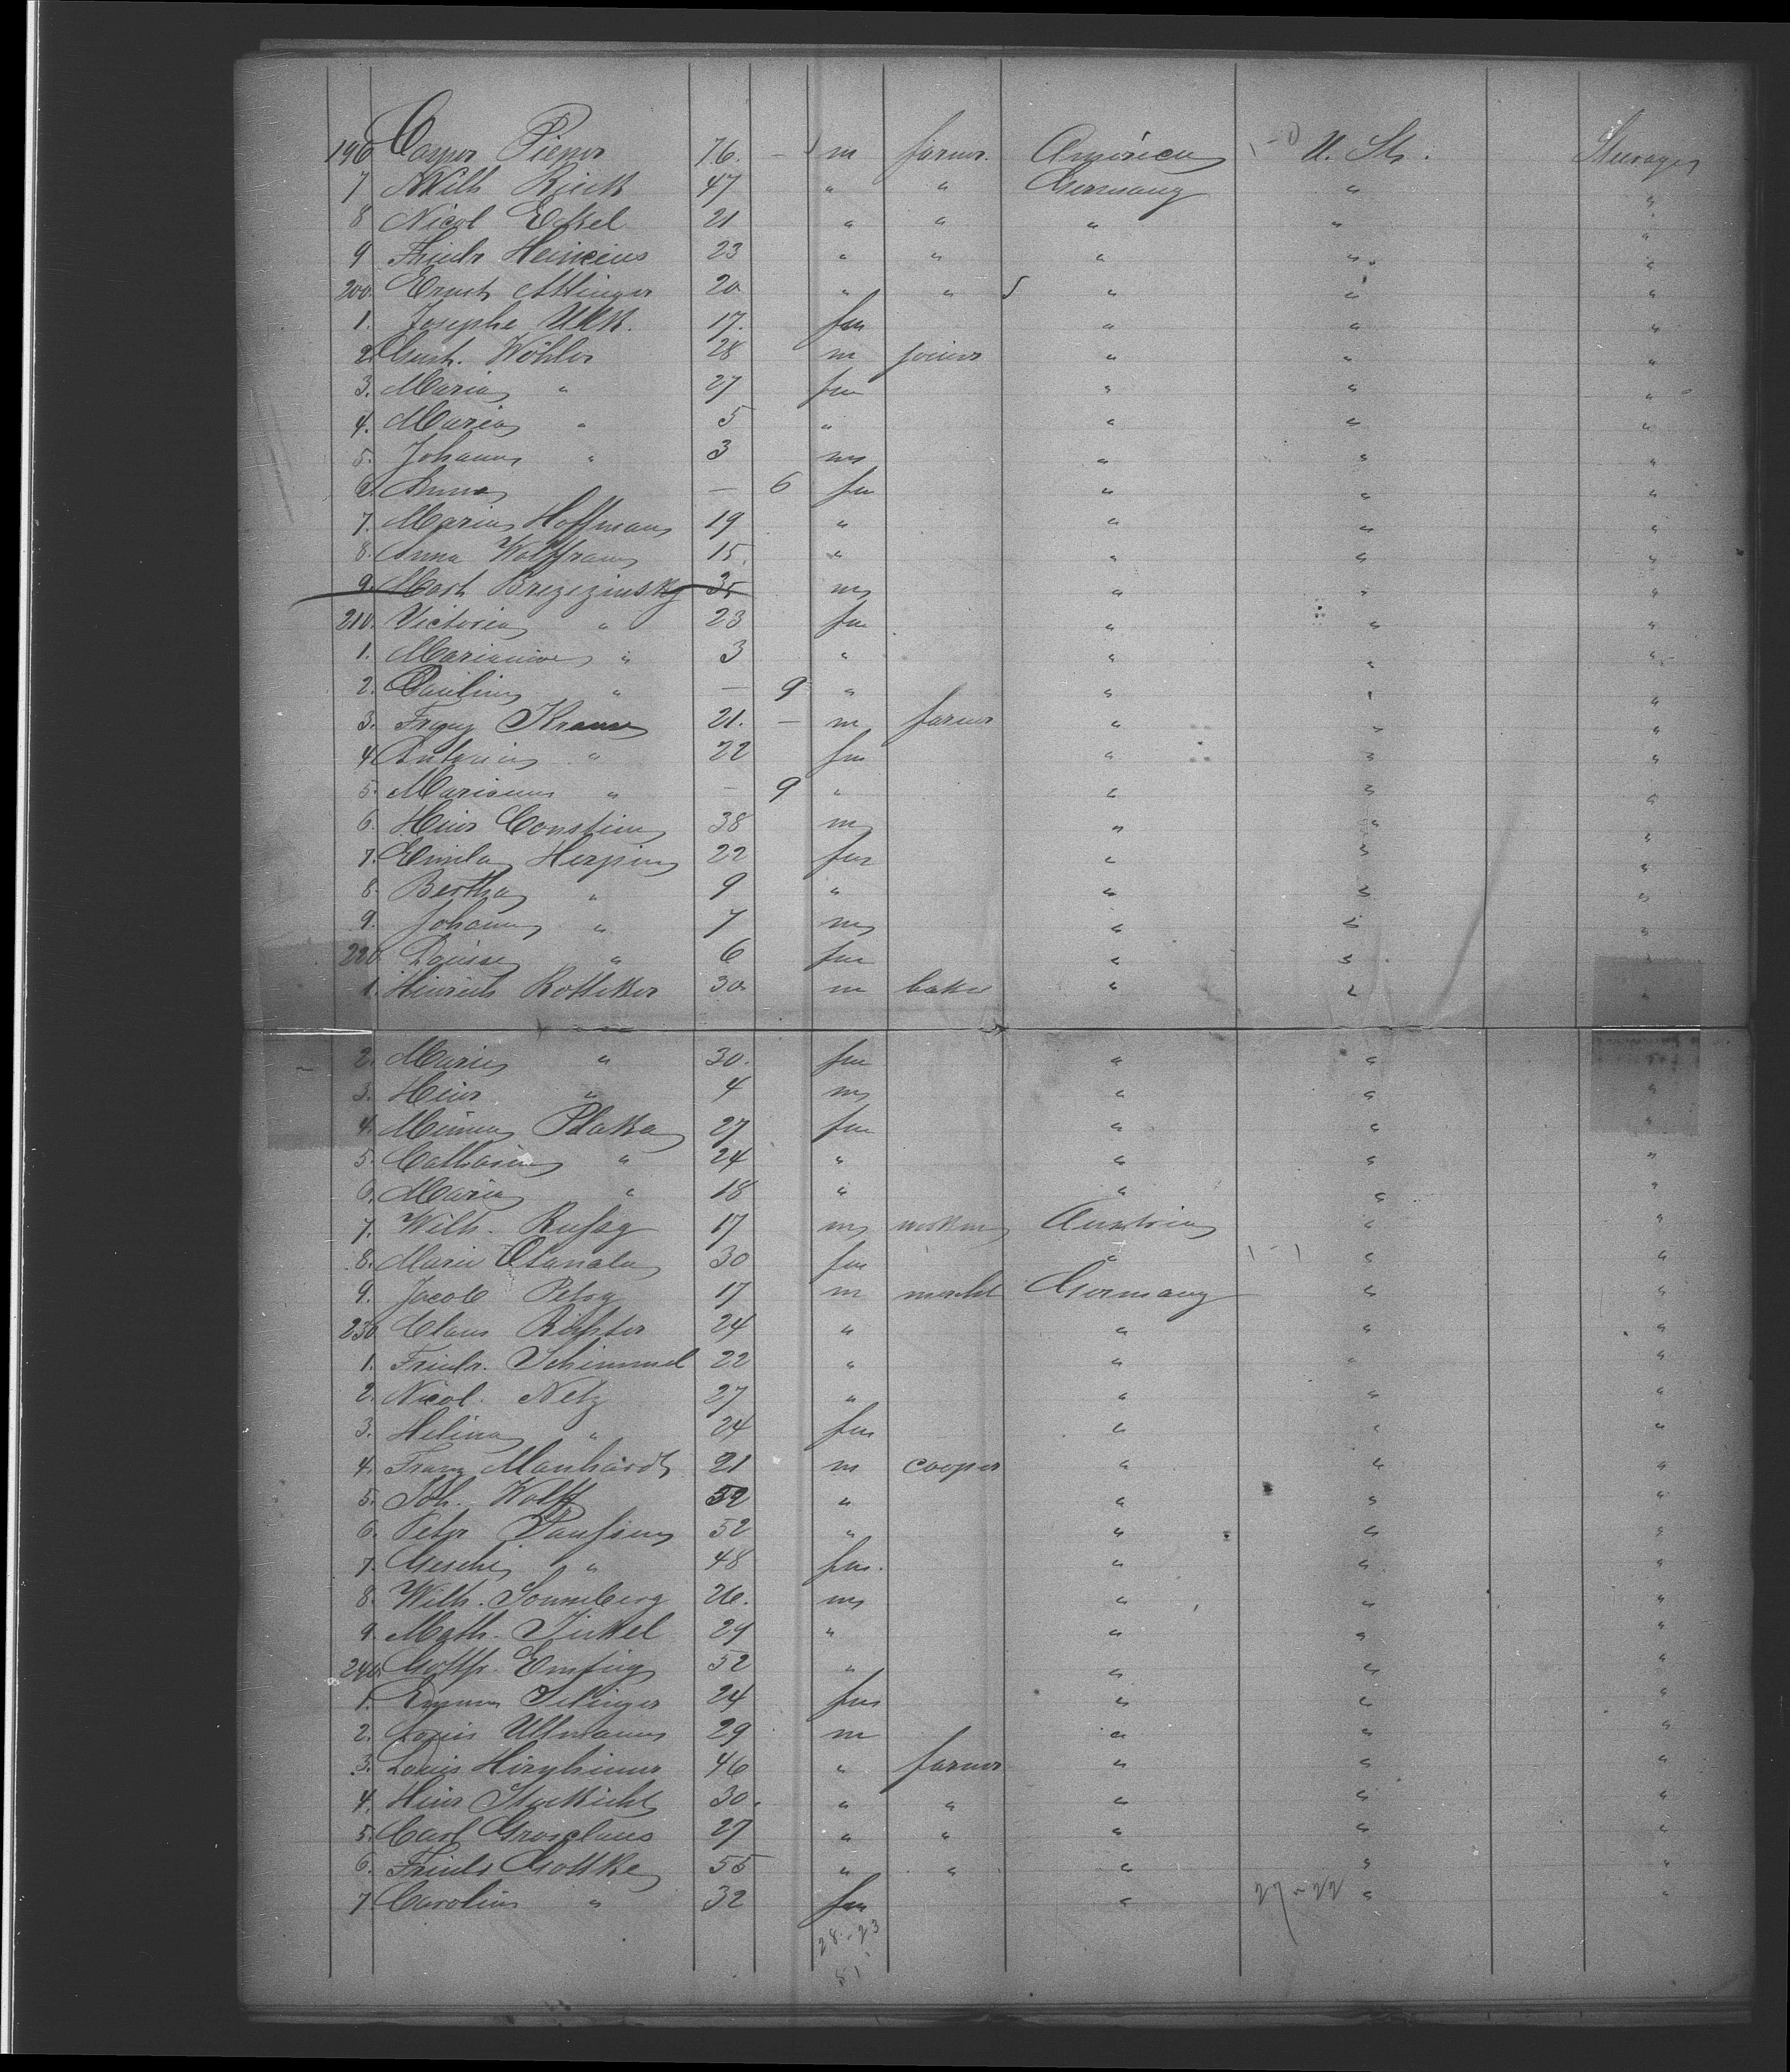 196 Casper Pieper 76. — m farmer. America U. Sts. Steerage
7 Wilh 47 " " Germany " "
8 Nicol Eckel 21 " " " " "
9 Friedr Heincius 23 " " " " "
200. Ernst Attinger 20 " " " " "
1. Josephe 17. fm " " "
2. Gust. Wöhler 28 m joiner " " "
3. Maria " 27 fm " " "
4. Maria " 5 " " " "
5. Johann " 3 m " " "
6. Anna — 6 fm " " "
7. Maria Hoffmann 19 " " " "
8. Anna Wolffram 15. " " " "
9. Mart Brezezinsky 35 m " " "
210. Victoria " 23 fm " " "
1. Marianne " 3 " " " "
2. Paulina " — 9 " " " "
3. Franz Krause 21. — m farmer " " "
4. Antonia " 22 fm " " "
5. Marianna " — 9 " " " "
6. Heinr Constien 38 m " " "
7. Emila 22 fm " " "
8. Bertha " 9 " " " "
9. Johann " 7 m " " "
220. Louise " 6 fm " " "
1. Heinrich Rötteker 30 m baker " " "
2. Marie " 30. fm " " "
3. Heinr " 4 m " " "
4. Minna 27 fm " " "
5. Catharina " 24 " " " "
6. Maria " 18 " " " "
7. Wilh. 17 m Austria " "
8. Marie 30 fm " 1-1 " "
9. Jacob Petry 17 m mercht Germany " "
230. Claus Richter 24 " " " "
1. Friedr. Schimmel 22 " " " "
2. Nicol. Netz 27 " " " "
3. Helina " 24 fm " " "
4. Franz Manhardt 21 m cooper " " "
5. Joh. Wolff 52 " " " "
6. Peter Paulsen 52 " " " "
7. Geschi " 48 fm. " " "
8. Wilh. Sonneberg 26. m " " "
9. Math. Jickel 29 " " " "
240. Gottfr. 52 " " " "
1. Emma 24 fm " " "
2. Louis Ullmann 29 m " " "
3. Louis 46 " farmer " " "
4. Heinr 30. " " " " "
5. Carl Grosclaus 27 " " " " "
6. Friedr Gottke 55 " " " " "
7 Carolina " 32 fm " 27-22 " "
28-23